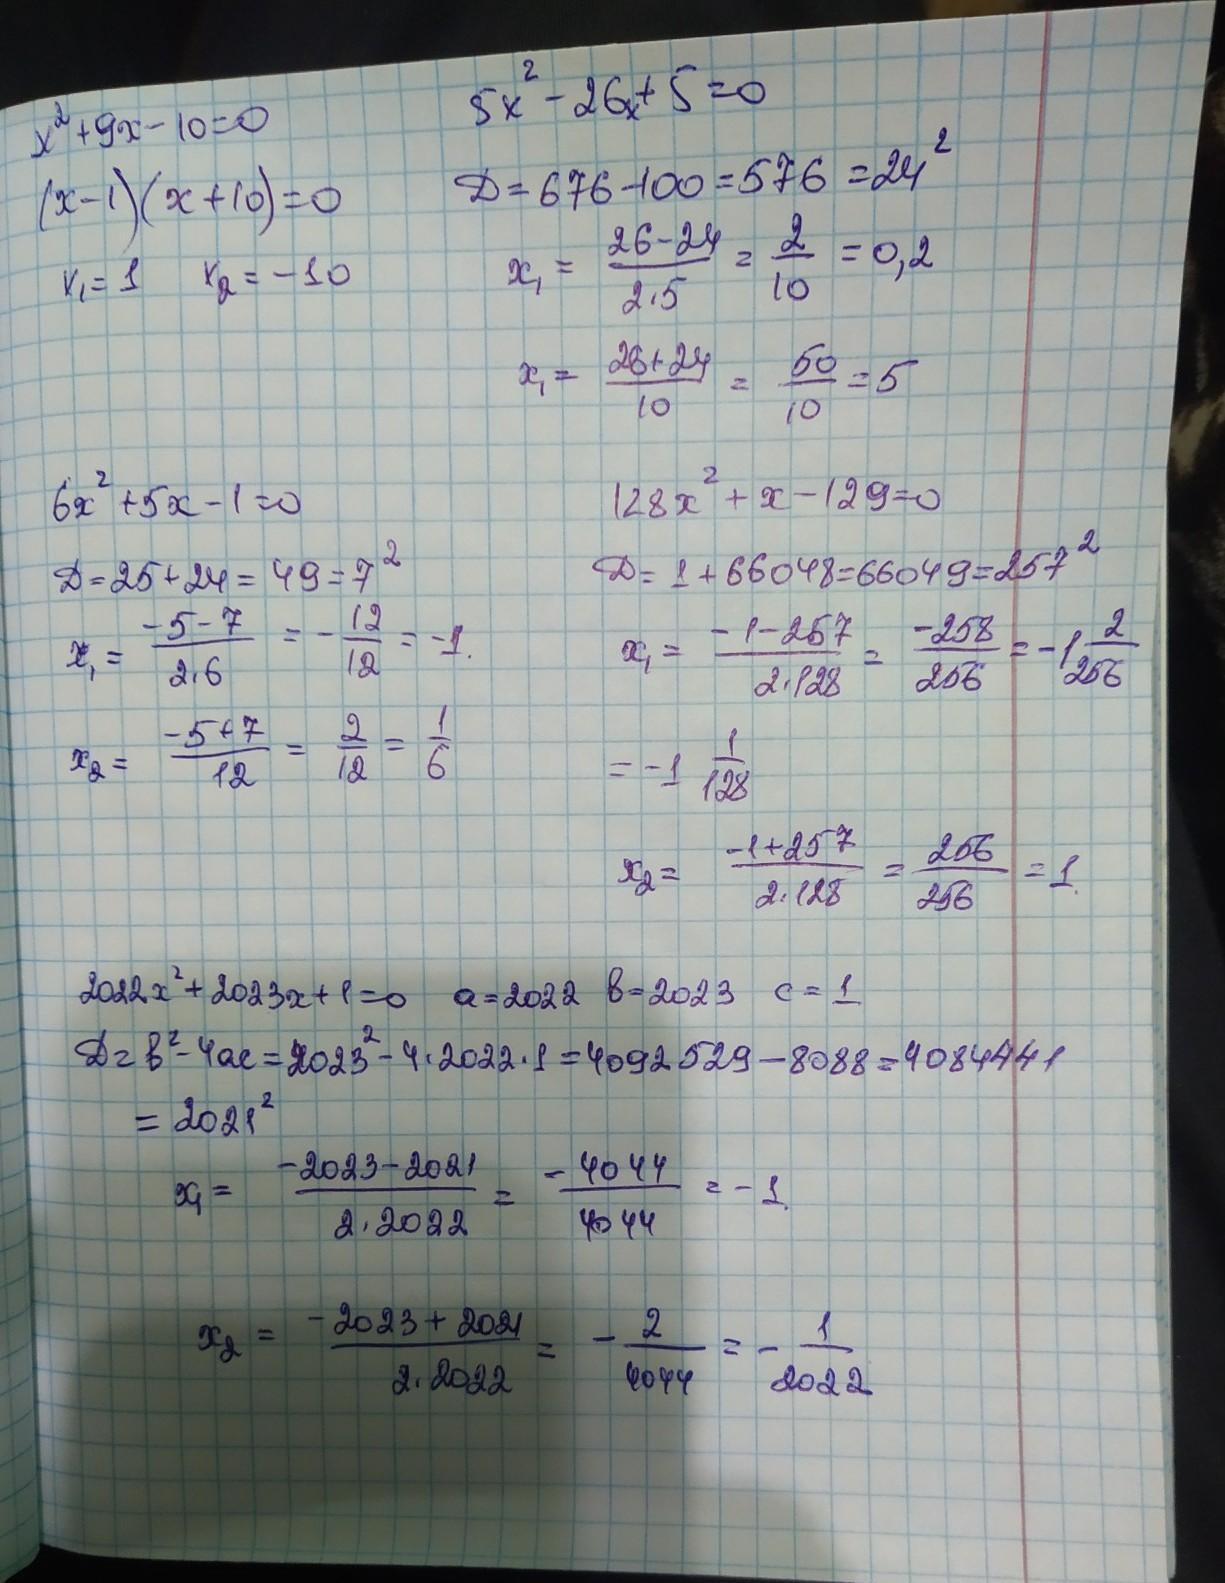 x² + 9x - 10 = 0
(x - 1)(x + 10) = 0
x₁ = 1 x₂ = -10
5x² - 26x + 5 = 0
D = 676 - 100 = 576 = 24²
x₁ = (26 - 24)/(2·5) = 2/10 = 0,2
x₁ = (26 + 24)/10 = 50/10 = 5
6x² + 5x - 1 = 0
D = 25 + 24 = 49 = 7²
x₁ = (-5 - 7)/(2·6) = -12/12 = -1.
x₂ = (-5 + 7)/12 = 2/12 = 1/6
128x² + x - 129 = 0
D = 1 + 66048 = 66049 = 257²
x₁ = (-1 - 257)/(2·128) = -258/256 = -1 2/256
= -1 1/128
x₂ = (-1 + 257)/(2·128) = 256/256 = 1.
2022x² + 2023x + 1 = 0 a = 2022 b = 2023 c = 1
D = b² - 4ac = 2023² - 4·2022·1 = 4092529 - 8088 = 4084441
= 2021²
x₁ = (-2023 - 2021)/(2·2022) = -4044/4044 = -1.
x₂ = (-2023 + 2021)/(2·2022) = -2/4044 = -1/2022